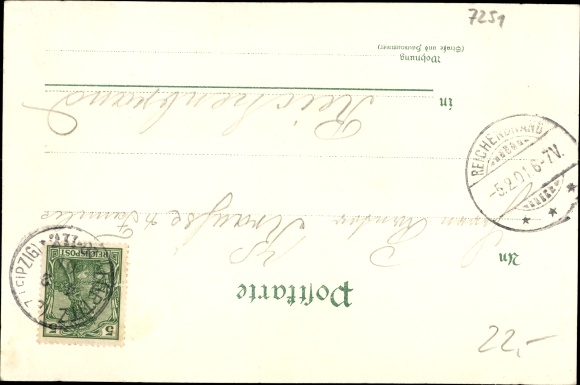 Postkarte
An
Krauße & Familie
in Reichenbrand
Wohnung
(Straße und Hausnummer)
REICHSPOST
5
5
(LEIPZIG)
REICHENBRAND
-5.2.01.6-7V.
* * *
7251
22,-